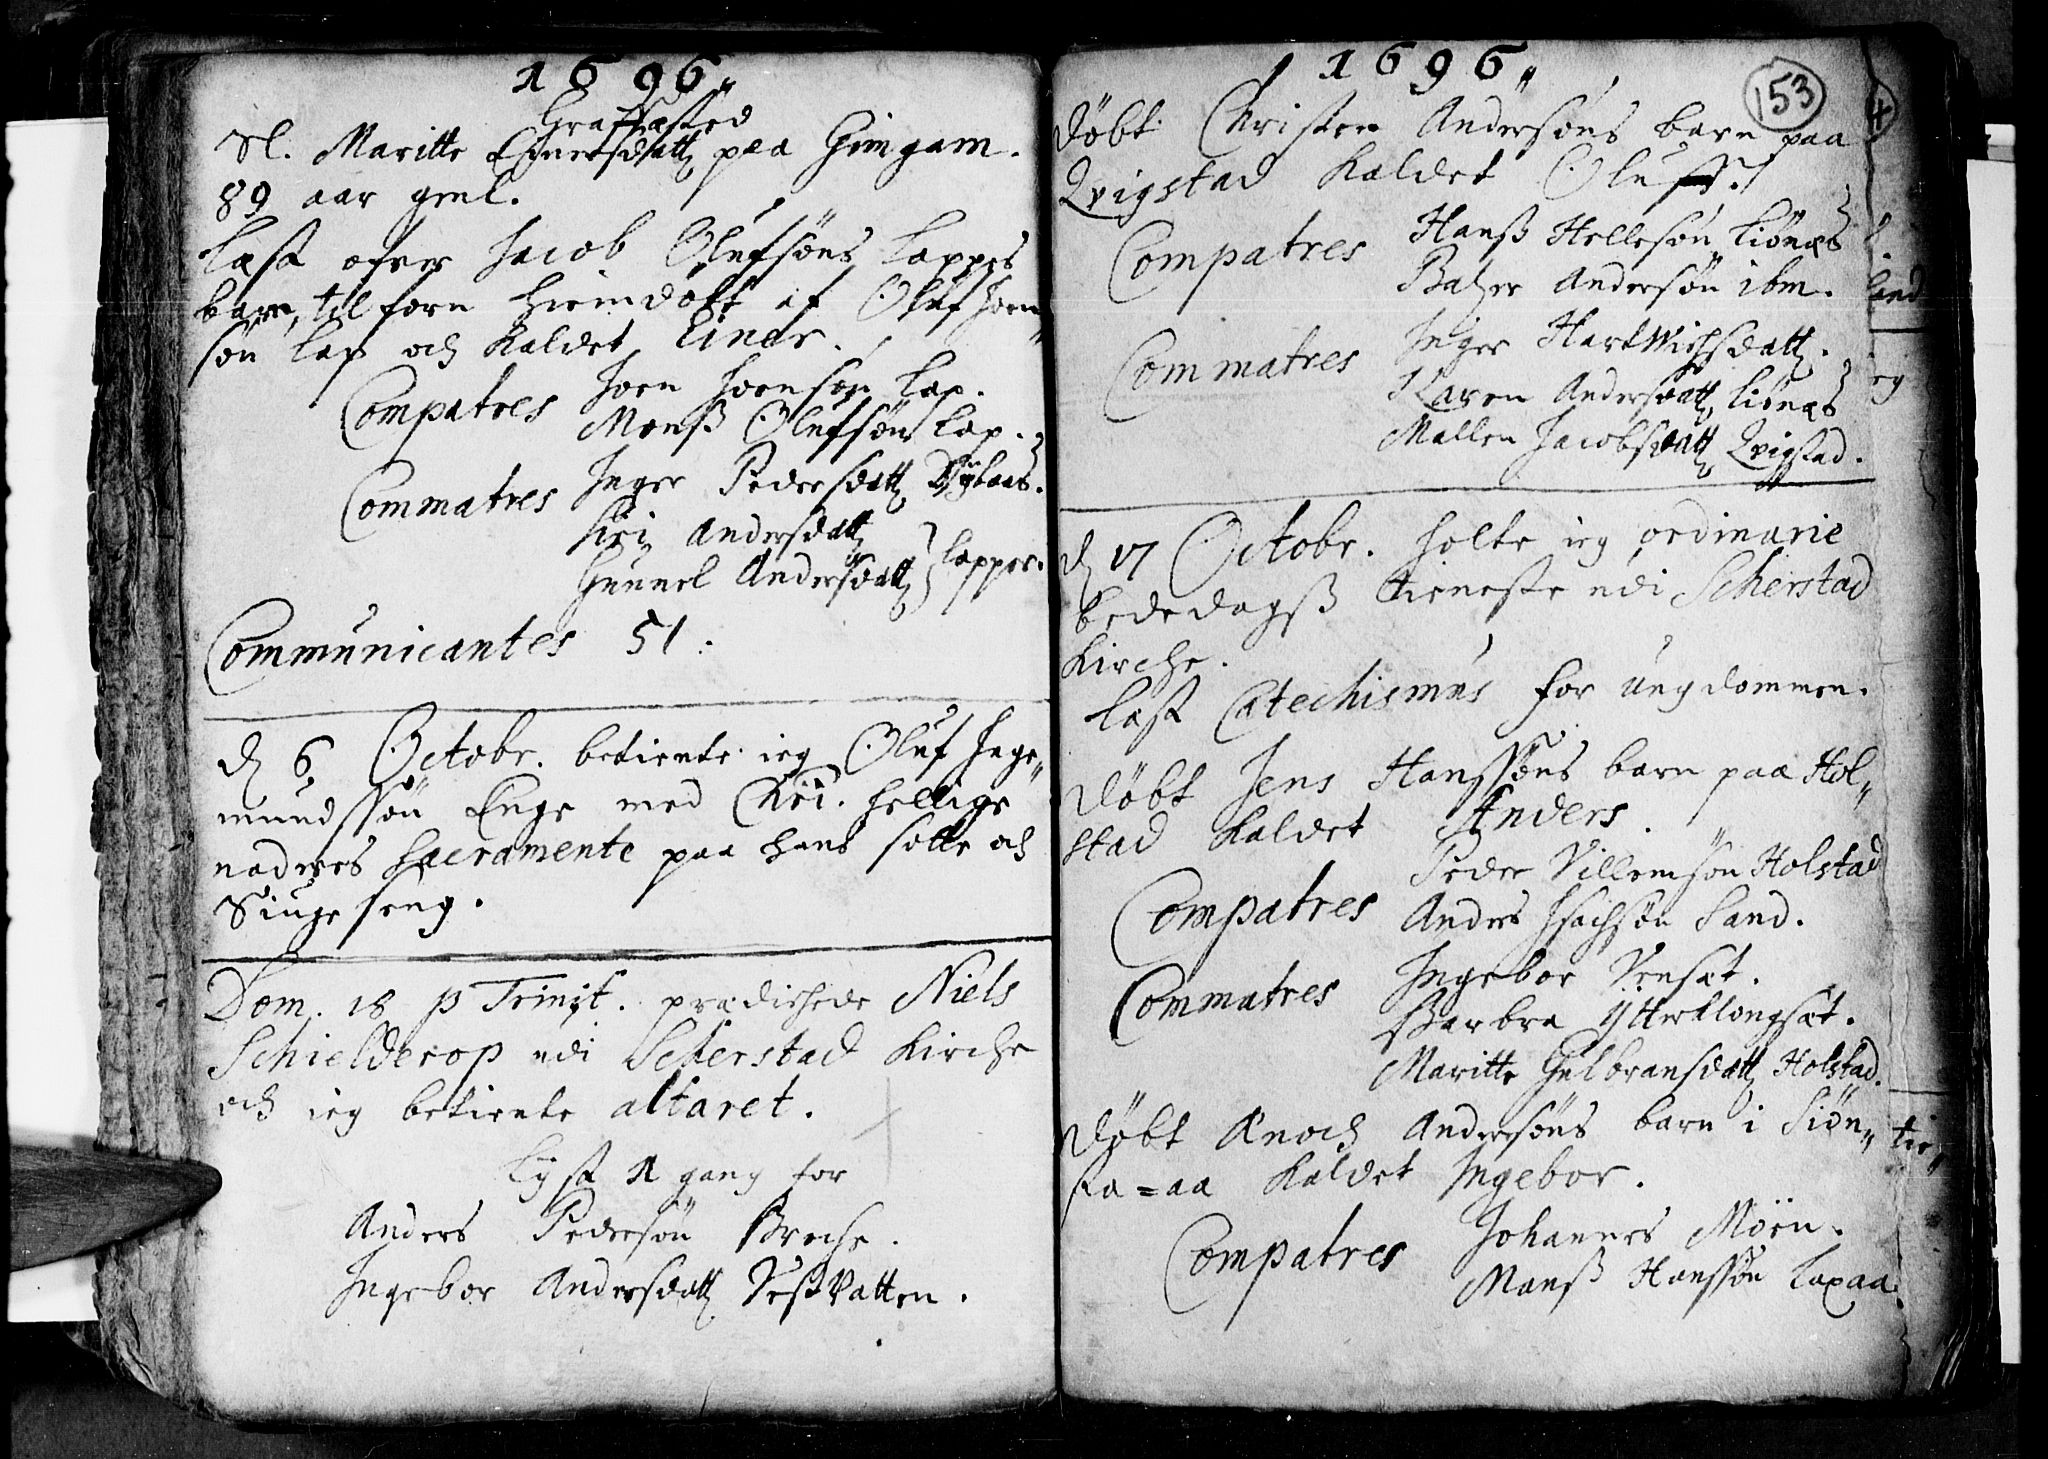 1696„
Graffæsted
Sl. Maritte Einersdatt paa Gimgam.
89 aar gml.
Læst ofver Jacob Olufsöns Lappes
barn, til forn hiemdöbt af Oluf Joen„
sön Lap och kaldet Einer.
Compatres Joen Joensön Lap.
Monß Olufsön Lap.
Commatres Inger Pedersdatt Dybaas.
Siri Andersdatt
Gunnel Andersdatt } Lapper.
Communicantes 51.
d 6 Octobr. betiente ieg Oluf Inge„
mundssön Enge med Chri. hellige
nadens Sacramente paa hans sotte och
Siuge seng.
Dom. 18 p Trinit. prædichede Niels
Schielderop udi Scherstad Kirche
och ieg betiente altaret.
Lyst 1 gang for
Anders Pedersön Breche.
Ingebor Andersdatt Vestvatten.
1696„
153
4
Döbt Christen Andersöns barn paa
Qvigstad kaldet Oluf.
Compatres Hanß Hellesön Liönæs
Baltzer Andersön ibm.
Commatres Inger Hartwichsdatt.
Karen Andersdatt Liönæs
Mallen Jacobsdatt Qvigstad.
d 17 Octobr. holte ieg ordinarie
bededagß tieneste udi Scherstad
Kirche.
Læst Catechismus for ungdommen.
Döbt Jens Hanssöns barn paa Hol„
stad kaldet Anders.
Compatres Peder Villemsön Holstad
Anders Isachsön Sand.
Commatres Ingebor Venset.
Barbra Ytterklongset.
Maritte Gulbransdatt Holstad.
Döbt Ænoch Andersöns barn i Siön„
sta=aa kaldet Ingebor.
Compatres Johannes Möen.
Monß Hanssön Laxaa.